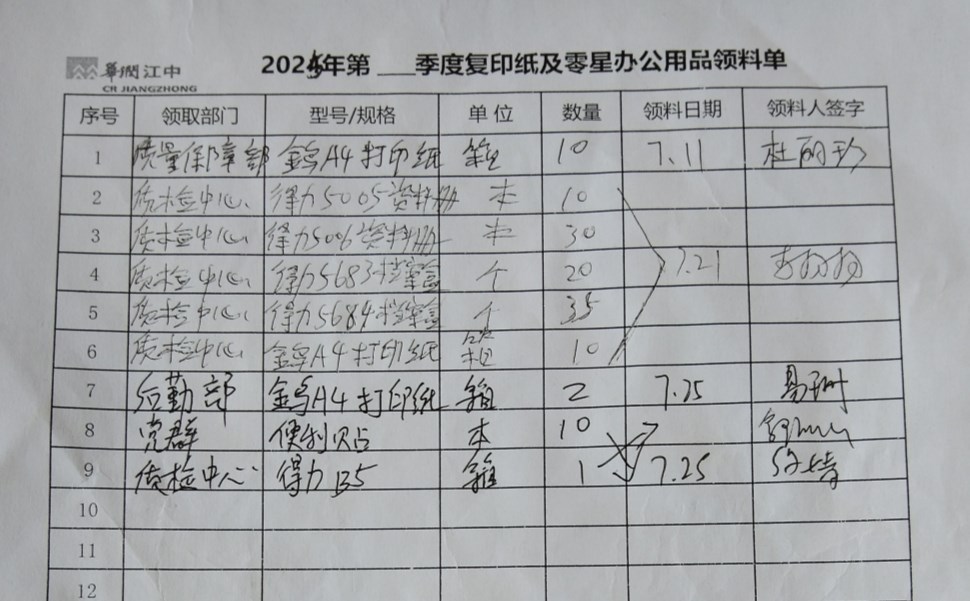 華潤江中
CR JIANGZHONG
2025年第 ___季度复印纸及零星办公用品领料单
序号 领取部门 型号/规格 单位 数量 领料日期 领料人签字
1 质量保障部 金鸟A4打印纸 箱 10 7.11 杜丽珍
2 质检中心 得力5005资料册 本 10
3 质检中心 得力5006资料册 本 30
4 质检中心 得力5683档案盒 个 20 7.21
5 质检中心 得力5684档案盒 个 35
6 质检中心 金鸟A4打印纸 箱 10
7 后勤部 金鸟A4打印纸 箱 2 7.25
8 党群 便利贴 本 10
9 质检中心 得力B5 箱 1 7.25
10
11
12